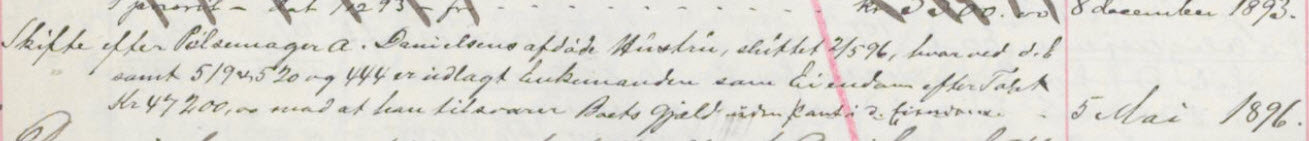 Kr 3300.00 8 december 1893.
Skifte efter Pølsemager A. Danielsens afdøde Hüstrü, slüttet 2/5 96, hvorved d. E
samt 519 a, 520 og 444 er üdlagt Enkemanden som Eiendom efter Taxt
Kr 47200,00 mod at han tilsvarer Boets Gjæld üden Pant i d. Eiendomme. 5 Mai 1896.